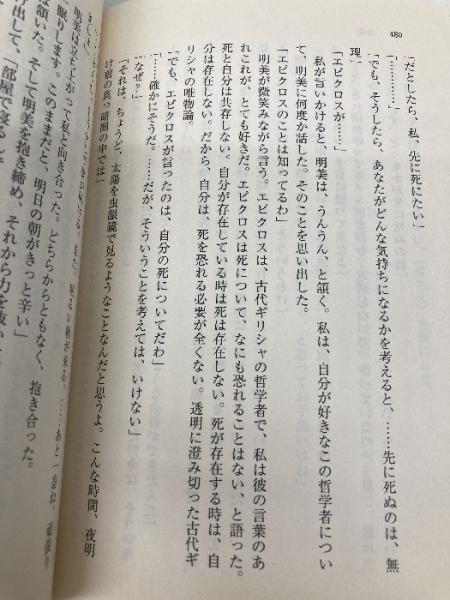 480
「だとしたら、私、先に死にたい」
「…………」
「でも、そうしたら、あなたがどんな気持ちになるかを考えると、……先に死ぬのは、無
理」
「エピクロスが……」
私が言いかけると、明美は、うんうん、と頷く。私は、自分が好きなこの哲学者につい
て、明美に何度か話した。そのことを思い出した。
「エピクロスのことは知ってるわ」
明美が微笑みながら言う。エピクロスは、古代ギリシャの哲学者で、私は彼の言葉のあ
れこれが、とても好きだ。エピクロスは死について、なにも恐れることはない、と語った。
死と自分は共存しない。自分が存在している時は死は存在しない。死が存在する時は、自
分は存在しない。だから、自分は、死を恐れる必要が全くない。透明に澄み切った古代ギ
リシャの唯物論。
「でも、エピクロスが言ったのは、自分の死についてだわ」
「……確かにそうだ。……だが、そういうことを考えては、いけない」
「なぜ？」
「それは、ちょうど、太陽を虫眼鏡で見るようなことなんだと思うよ。こんな時間、夜明
け前の真っ暗闇の中では」
明美は立ち上がって私と向き合った。どちらからともなく、抱き合った。
眠ります。このままだと、明日の朝がきっと辛い」
頷いた。そして明美を抱き締め、それから力を抜いて
出して、「部屋で寝るし